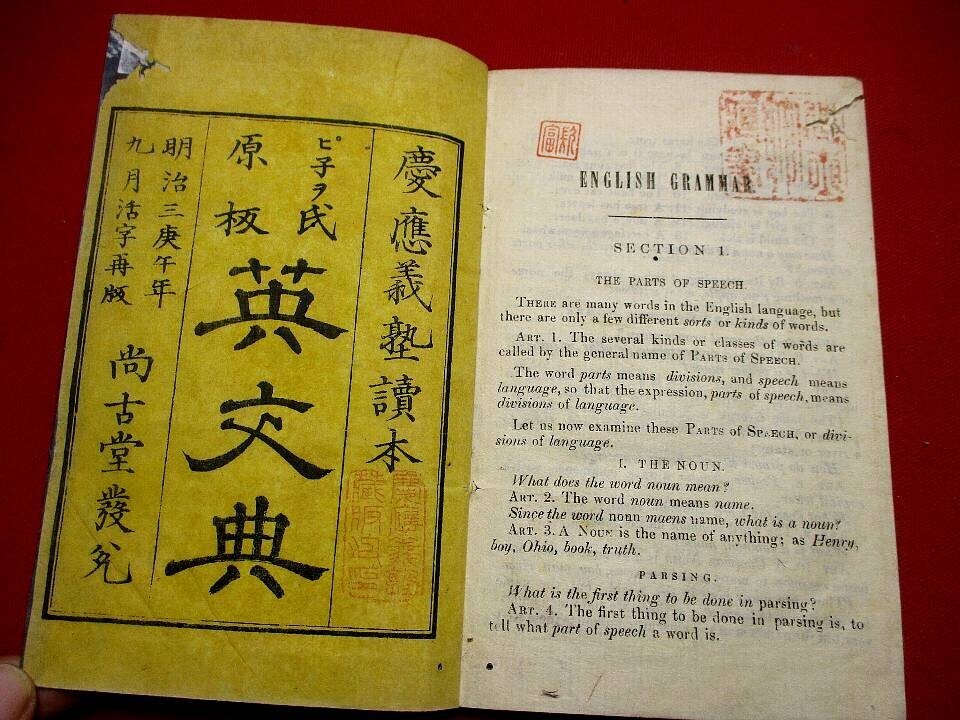 慶應義塾讀本
ピ子ヲ氏
原板
英文典
明治三庚午年
九月活字再版
尚古堂發兌
ENGLISH GRAMMAR
SECTION 1.
THE PARTS OF SPEECH.
THERE are many words in the English language, but
there are only a few different sorts or kinds of words.
ART. 1. The several kinds or classes of words are
called by the general name of PARTS OF SPEECH.
The word parts means divisions, and speech means
language, so that the expression, parts of speech, means
divisions of language.
Let us now examine these PARTS OF SPEECH, or divi-
sions of language.
I. THE NOUN.
What does the word noun mean?
ART. 2. The word noun means name.
Since the word noun maens name, what is a noun?
ART. 3. A NOUN is the name of anything; as Henry,
boy, Ohio, book, truth.
PARSING.
What is the first thing to be done in parsing?
ART. 4. The first thing to be done in parsing is, to
tell what part of speech a word is.